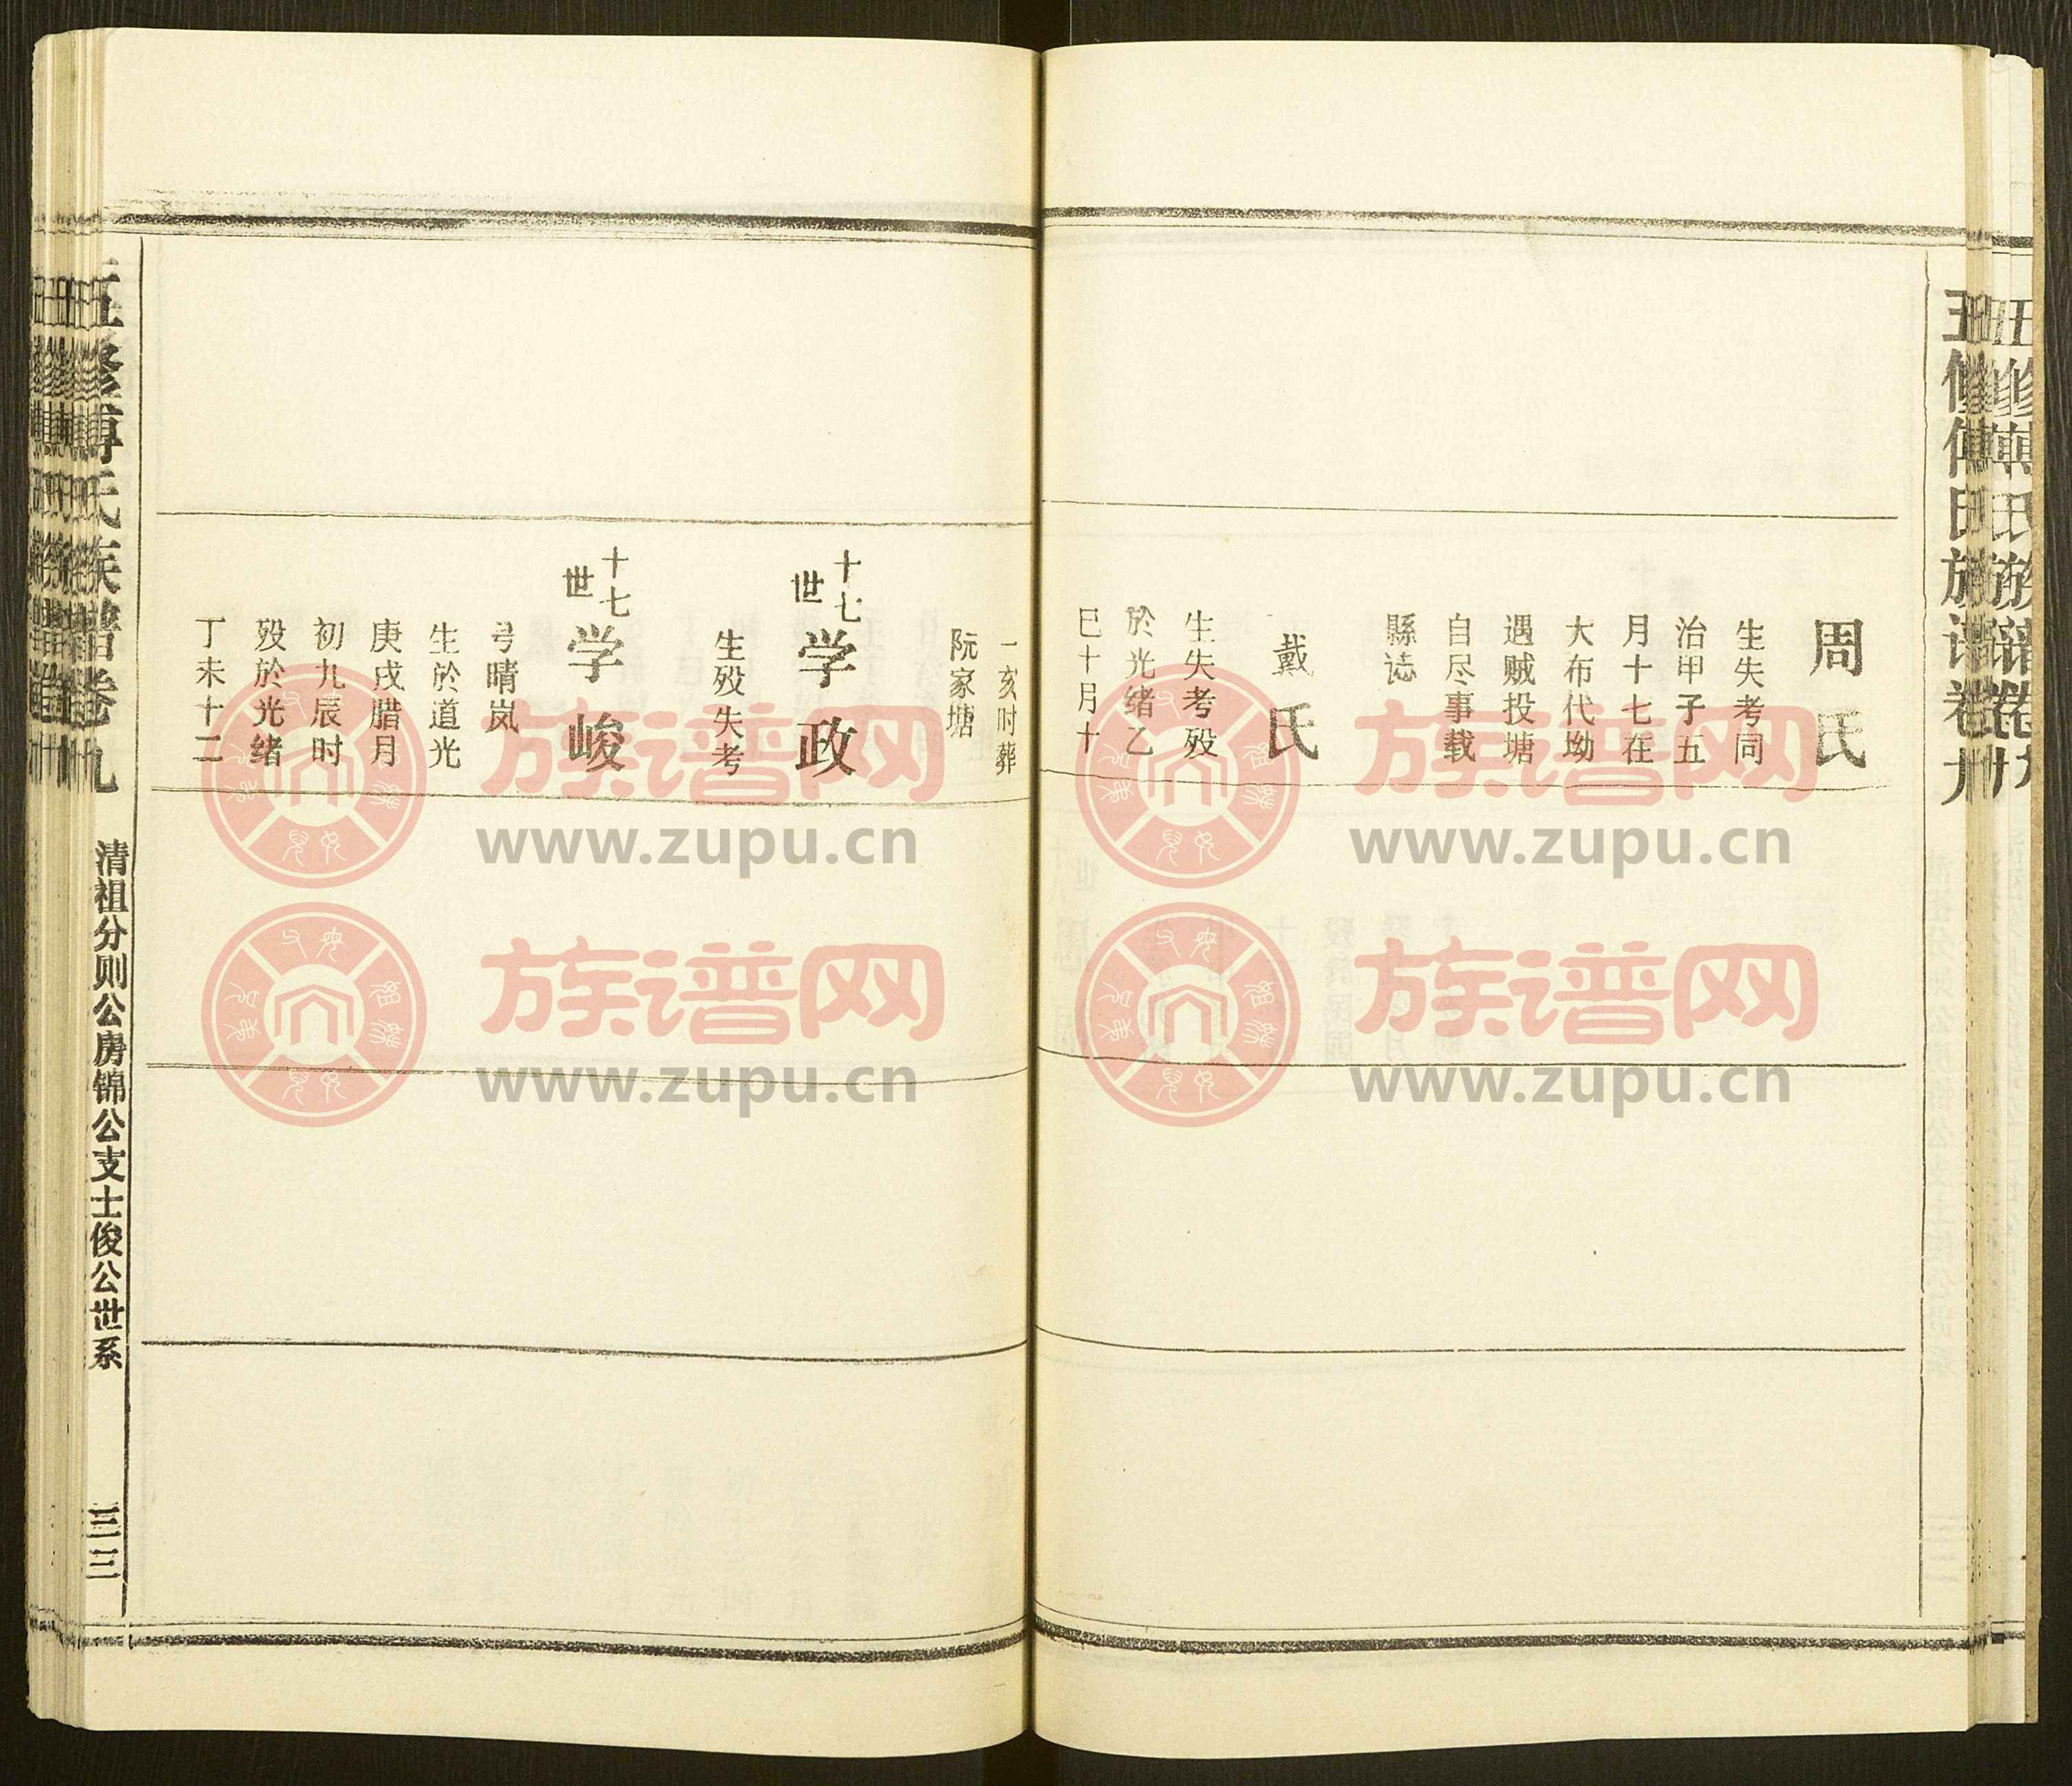 周氏
生失考同
治甲子五
月十七在
大布代坳
遇贼投塘
自尽事载
縣誌
戴氏
生失考殁
於光绪乙
巳十月十
一亥时葬
阮家塘
十七世
学政
生殁失考
十七世
学峻
号晴岚
生於道光
庚戌腊月
初九辰时
殁於光绪
丁未十二
五修傅氏族谱卷九
清祖分则公房锦公支士俊公世系
三三
族谱网
www.zupu.cn
族谱网
www.zupu.cn
族谱网
www.zupu.cn
族谱网
www.zupu.cn